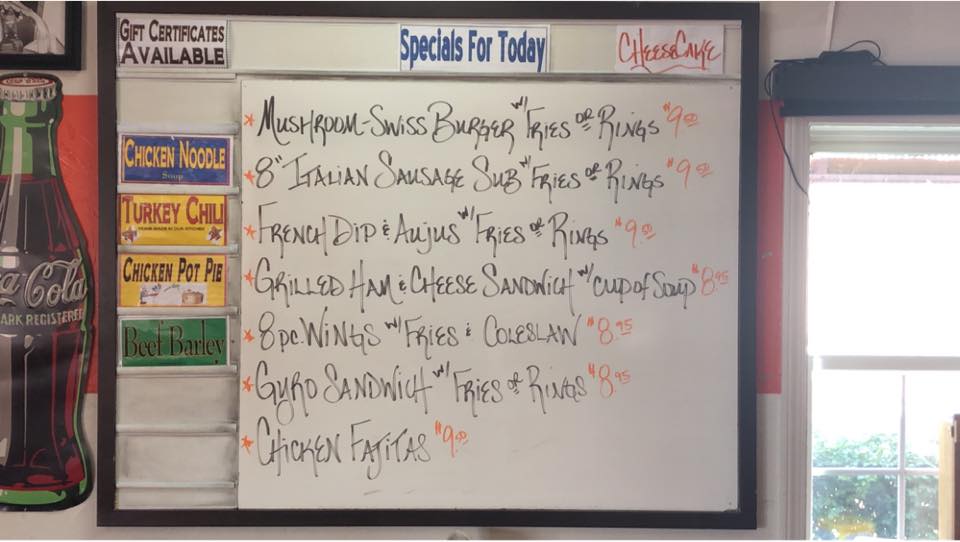 GIFT CERTIFICATES
AVAILABLE
Specials For Today
CHEESECAKE
CHICKEN NOODLE
Soup
TURKEY CHILI
CHICKEN POT PIE
Beef Barley
* MUSHROOM-SWISS BURGER W/ FRIES OR RINGS $9.00
* 8" ITALIAN SAUSAGE SUB W/ FRIES OR RINGS $9.50
* FRENCH DIP & AUJUS W/ FRIES OR RINGS $9.50
* GRILLED HAM & CHEESE SANDWICH W/ CUP OF SOUP $8.95
* 8 PC. WINGS W/ FRIES & COLESLAW $8.95
* GYRO SANDWICH W/ FRIES OR RINGS $8.95
* CHICKEN FAJITAS $9.00
a-Cola
ARK REGISTERED